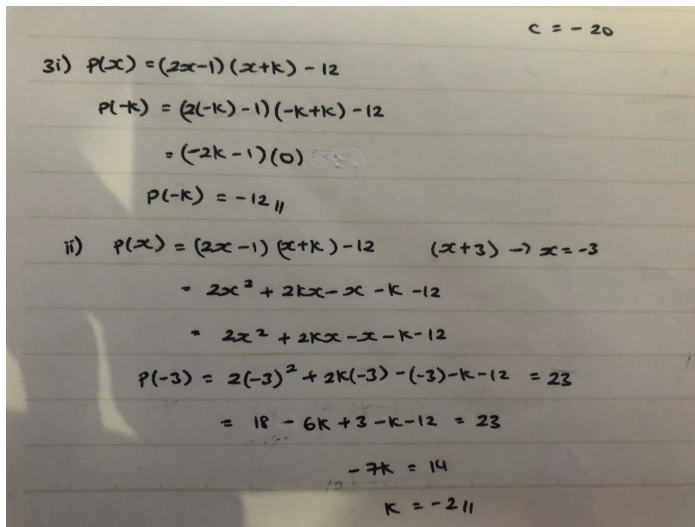 c = - 20
3i) P(x) = (2x-1) (x+k) - 12
P(-k) = (2(-k) - 1) (-k+k) - 12
= (-2k - 1) (0)
P(-k) = -12 //
ii) P(x) = (2x-1) (x+k) - 12 (x+3) → x = -3
= 2x² + 2kx - x - k - 12
= 2x² + 2kx - x - k - 12
P(-3) = 2(-3)² + 2k(-3) - (-3) - k - 12 = 23
= 18 - 6k + 3 - k - 12 = 23
-7k = 14
k = -2 //